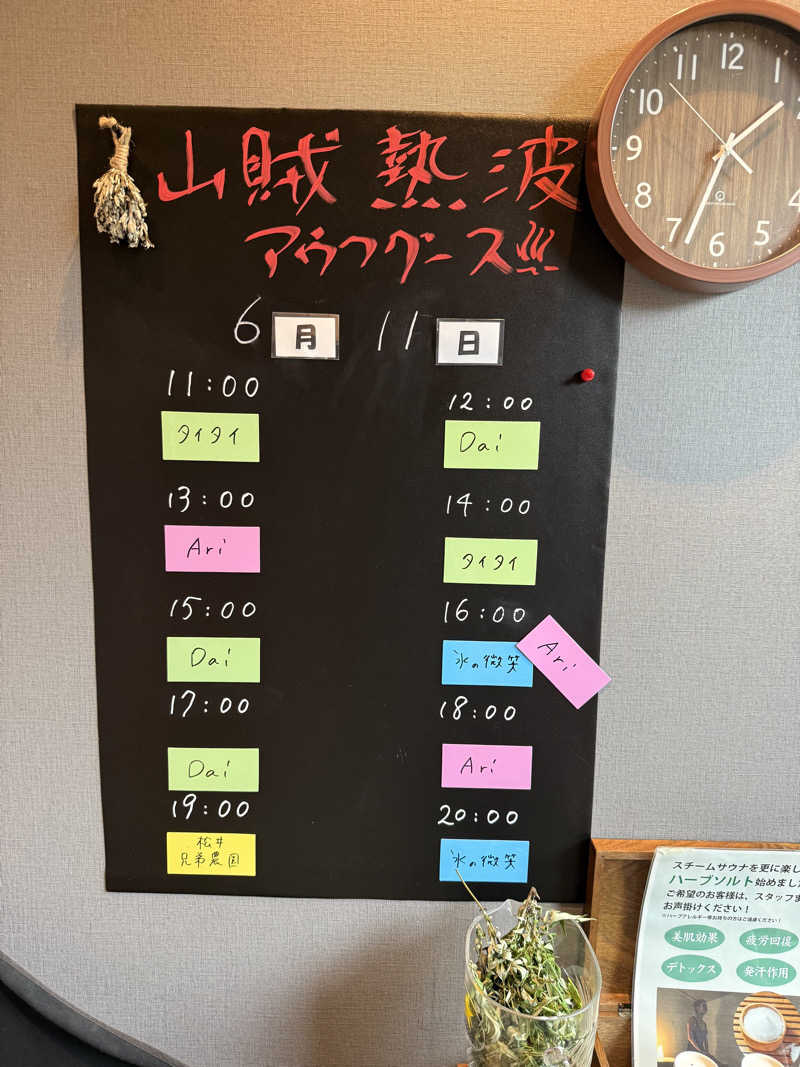 山賊熱波
アウフグース!!!
6月11日
11:00
タイタイ
12:00
Dai
13:00
Ari
14:00
タイタイ
15:00
Dai
16:00
氷の微笑
Ari
17:00
Dai
18:00
Ari
19:00
松井
兄弟農園
20:00
氷の微笑
12
1
4
5
6
7
8
9
10
11
スチームサウナを更に楽し
ハーブソルト始めました
ご希望のお客様は、スタッフま
お声掛けください！
※ハーブアレルギー等お持ちの方はご遠慮ください！
美肌効果
疲労回復
デトックス
発汗作用